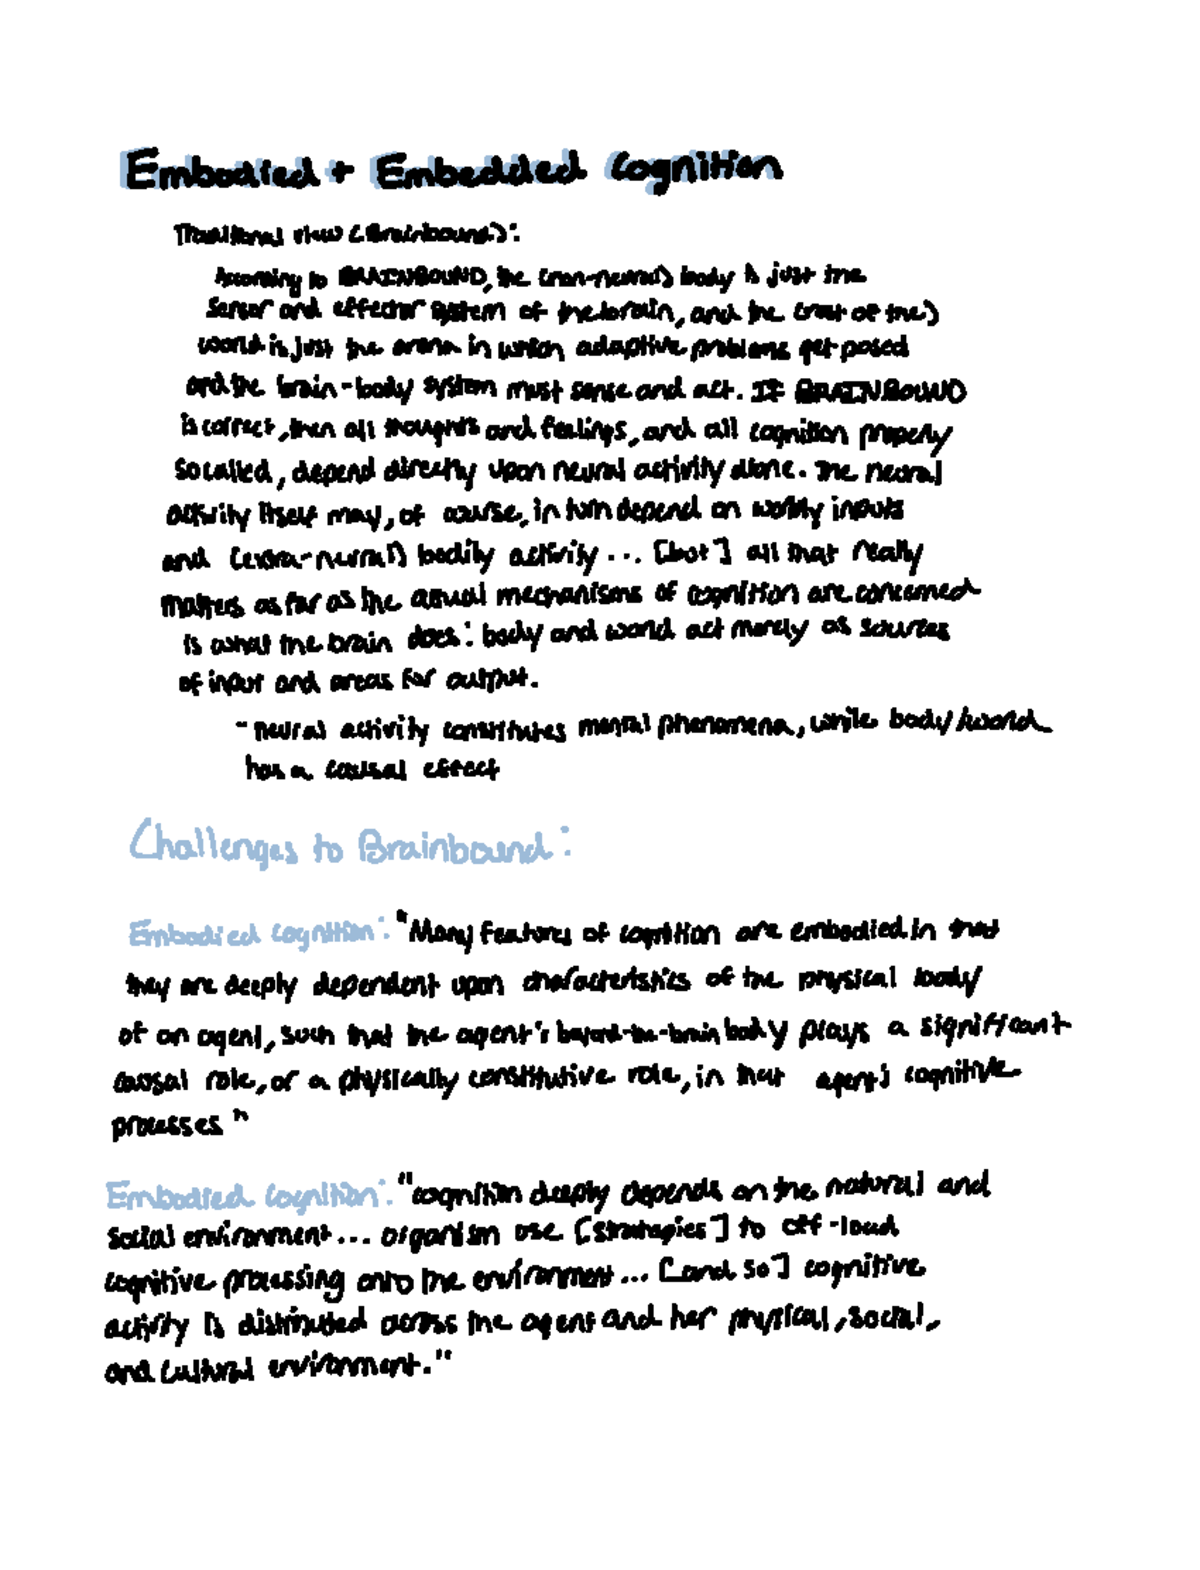 Embodied + Embedded Cognition
Traditional view (Brainbound):
According to BRAINBOUND, the (non-neural) body is just the
sensor and effector system of the brain, and the (rest of the)
world is just the arena in which adaptive problems get posed
and the brain-body system must sense and act. If BRAINBOUND
is correct, then all thoughts and feelings, and all cognition properly
so called, depend directly upon neural activity alone. The neural
activity itself may, of course, in turn depend on worldly inputs
and (extra-neural) bodily activity... [but] all that really
matters as far as the actual mechanisms of cognition are concerned
is what the brain does: body and world act merely as sources
of input and areas for output.
- neural activity constitutes mental phenomena, while body/world
has a causal effect
Challenges to Brainbound:
Embodied cognition: "Many features of cognition are embodied in that
they are deeply dependent upon characteristics of the physical body
of an agent, such that the agent's beyond-the-brain body plays a significant
causal role, or a physically constitutive role, in that agent's cognitive
processes"
Embodied cognition: "cognition deeply depends on the natural and
social environment... organism use [strategies] to off-load
cognitive processing onto the environment... [and so] cognitive
activity is distributed across the agent and her physical, social,
and cultural environment."